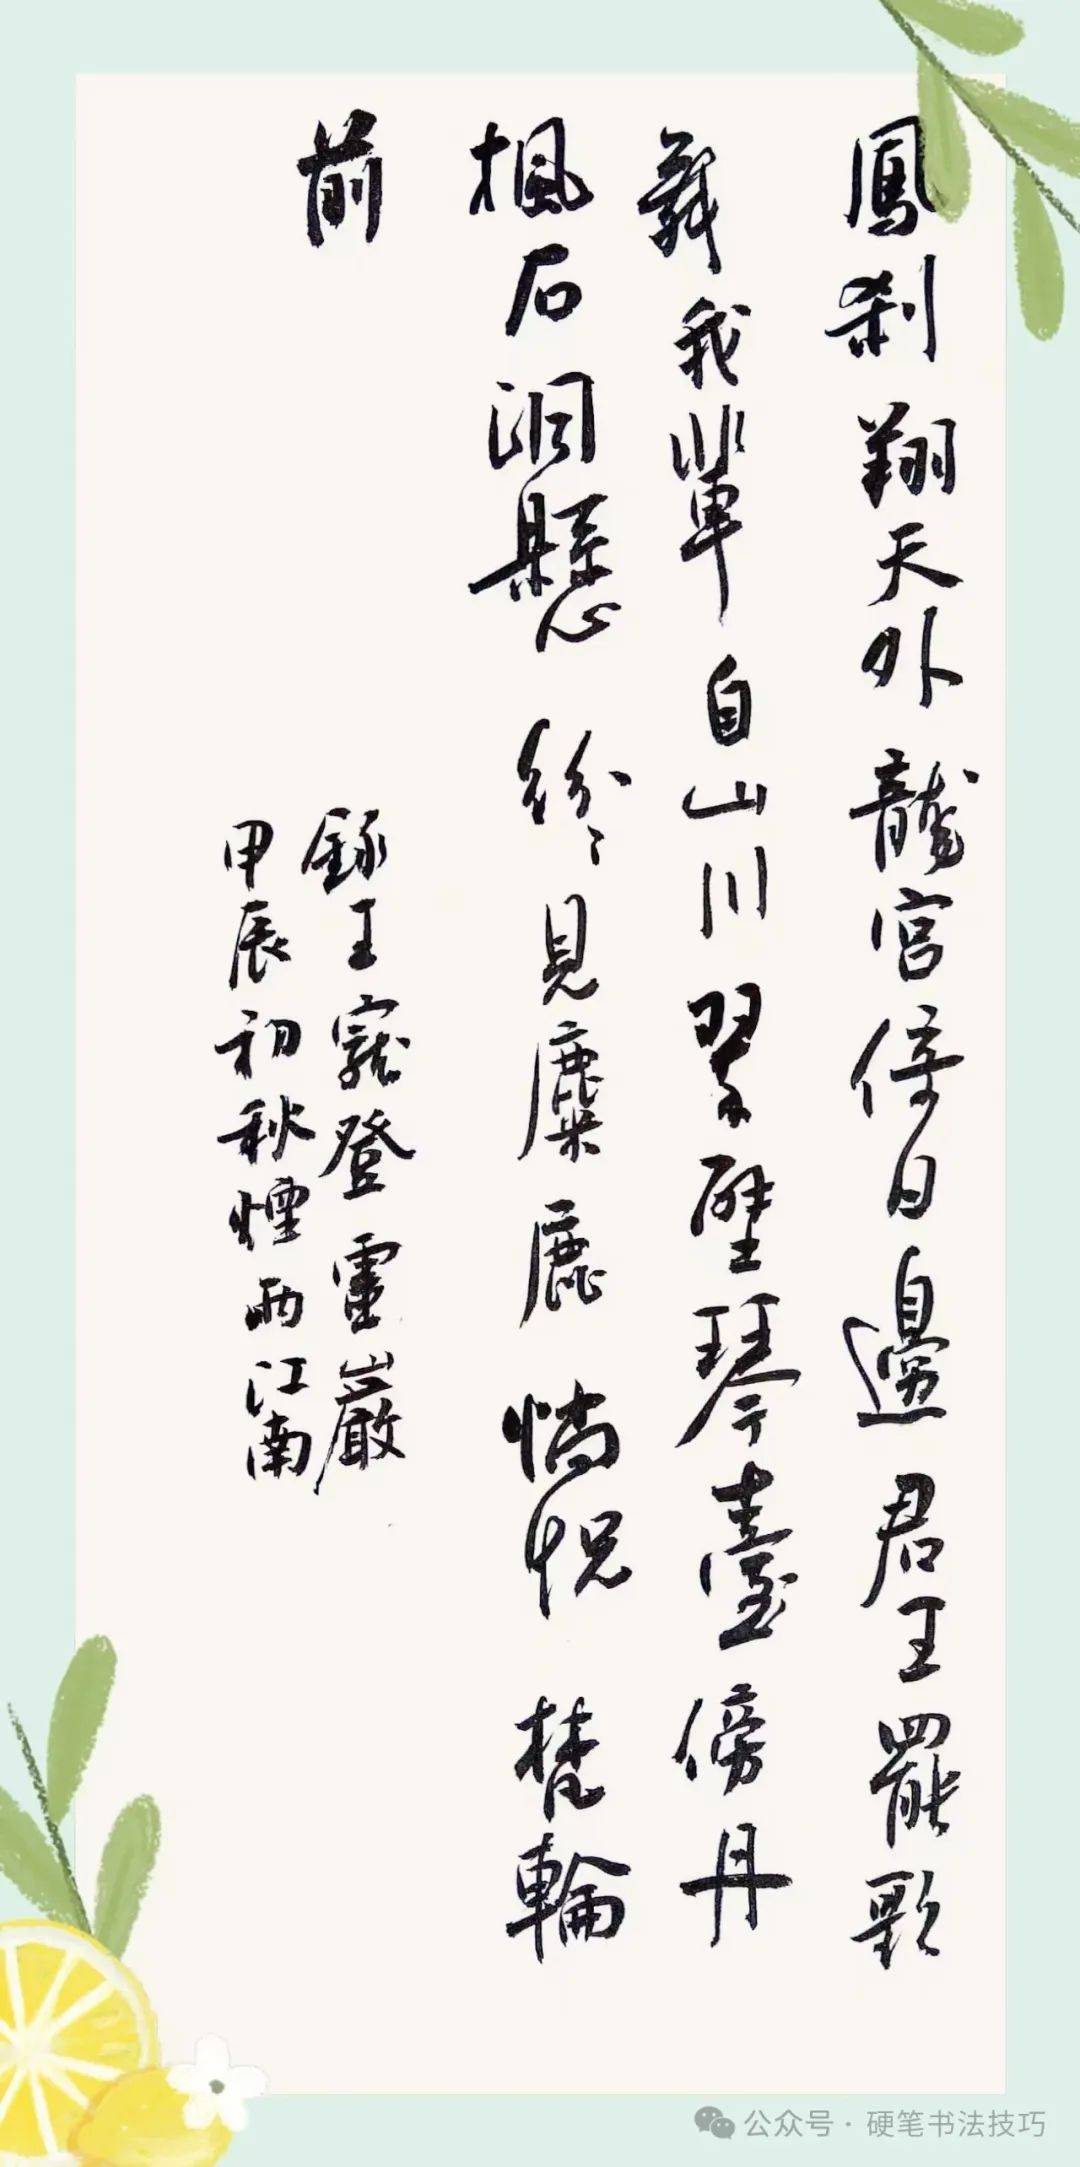 鳳刹翔天外龍宮倚日邊君王罷歌
舞我輩自山川翠壁琴臺傍丹
楓石洞懸紛々見麋鹿惝怳梵輪
前
錄王寵登靈巖
甲辰初秋煙雨江南
公众号·硬笔书法技巧